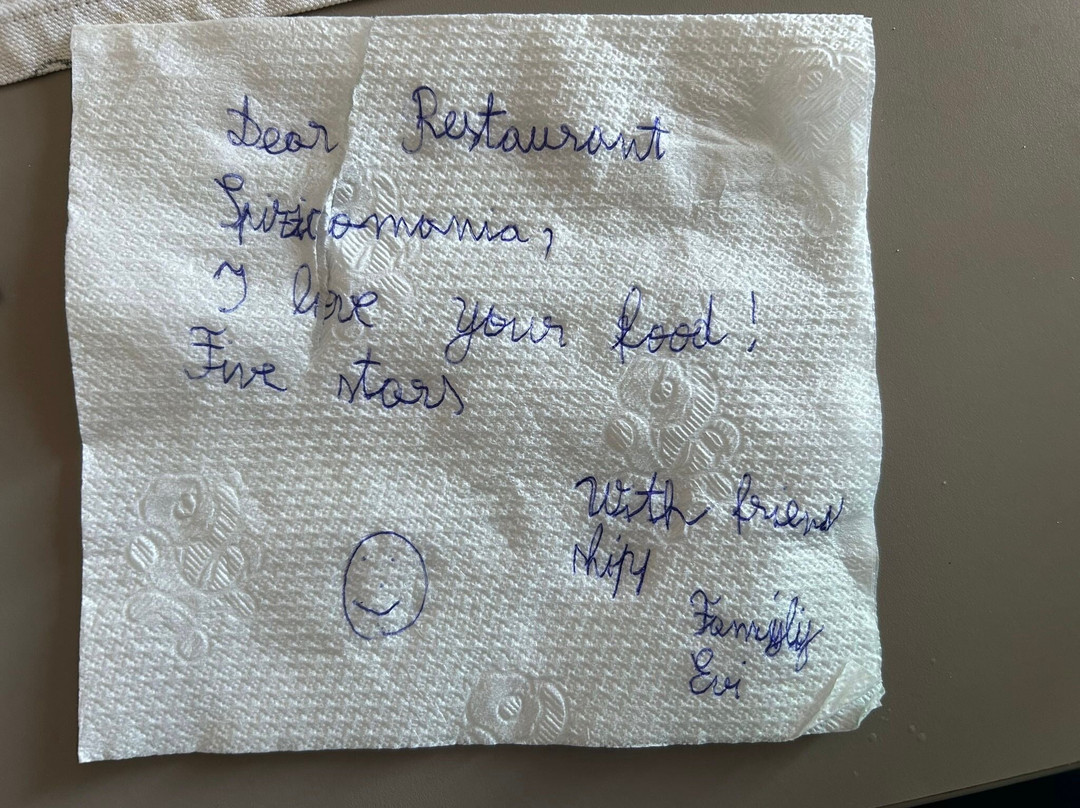 Dear Restaurant
Spizzicomania,
I love your food!
Five stars
With friend
ship
Famijly
Evi